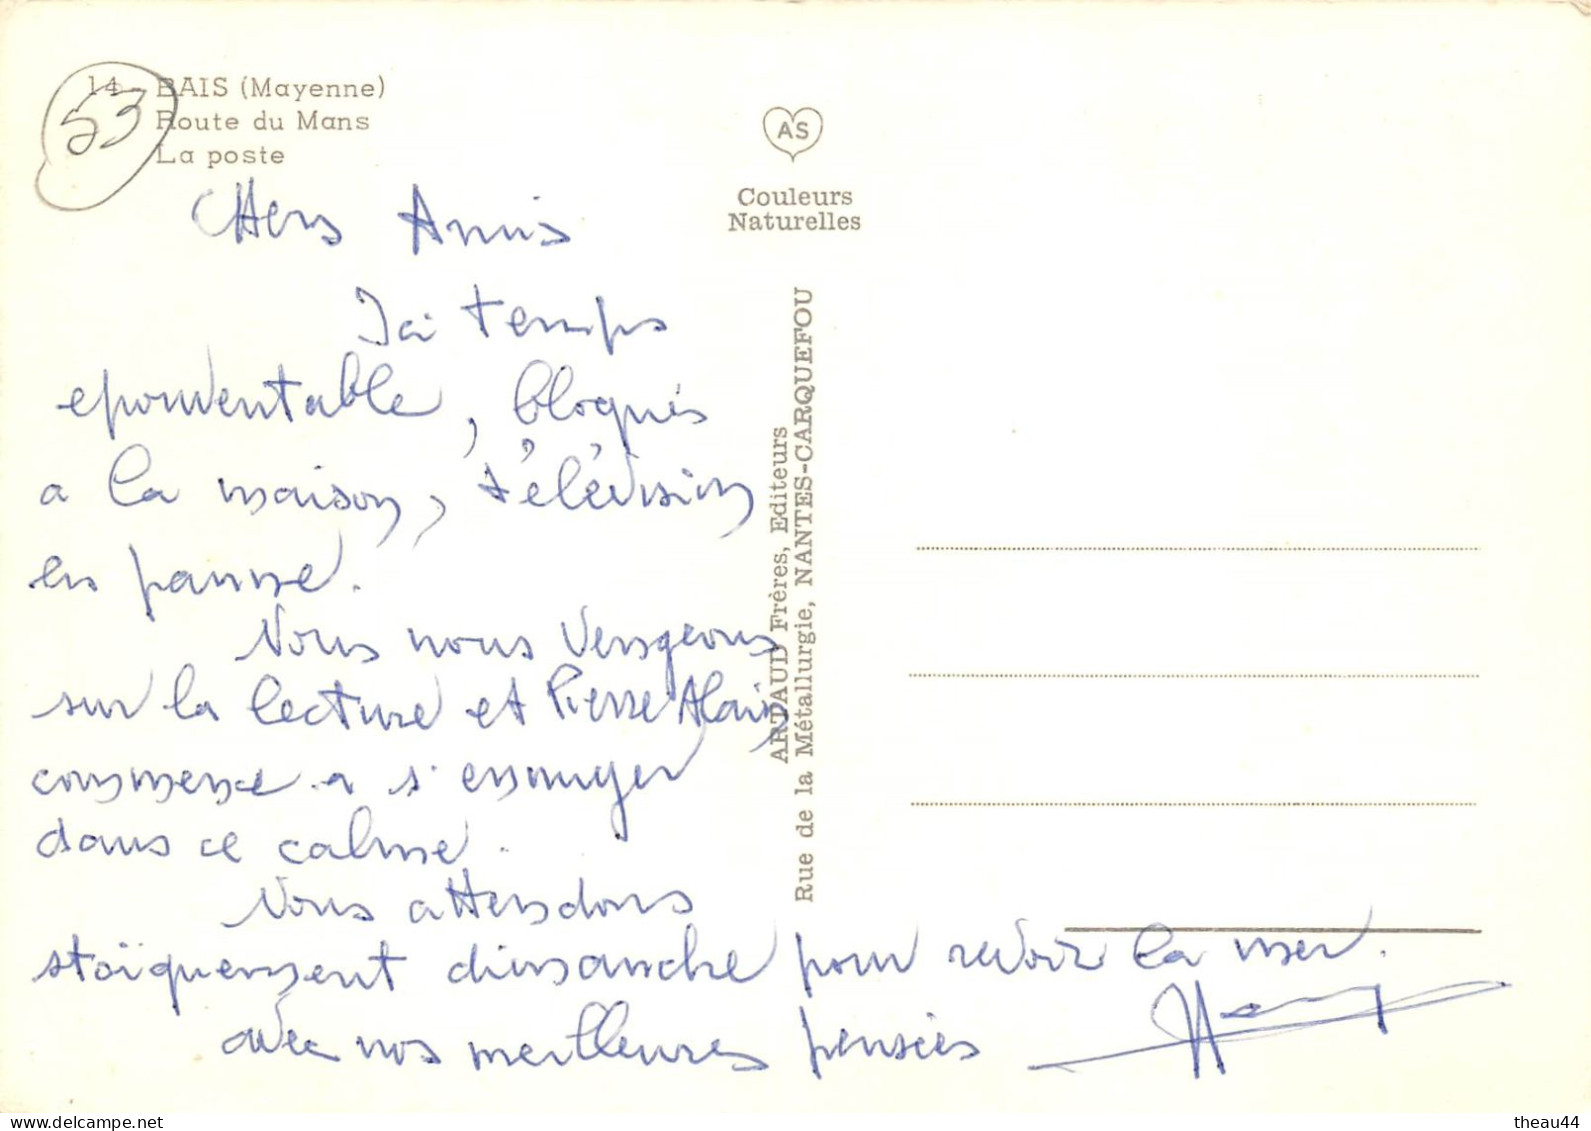 14 - BAIS (Mayenne)
Route du Mans
La poste
53
AS
Couleurs
Naturelles
ARTAUD Frères, Editeurs
Rue de la Métallurgie, NANTES-CARQUEFOU
CHers Amis
Ici temps
epouventable, bloqués
a la maison, télévision
en panne.
Nous nous vengeons
sur la lecture et Pierre Alain
commence a s'ennuyer
dans ce calme.
Nous attendons
stoïquement dimanche pour revoir la mer.
avec nos meilleures pensées
theau44